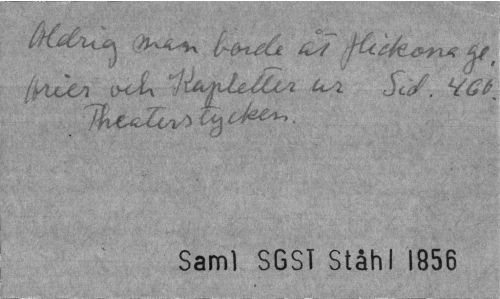 Aldrig man borde åt flickorna ge,
Arier och Kupletter ur Sid. 466.
Theaterstycken.
Saml SGST Ståhl 1856